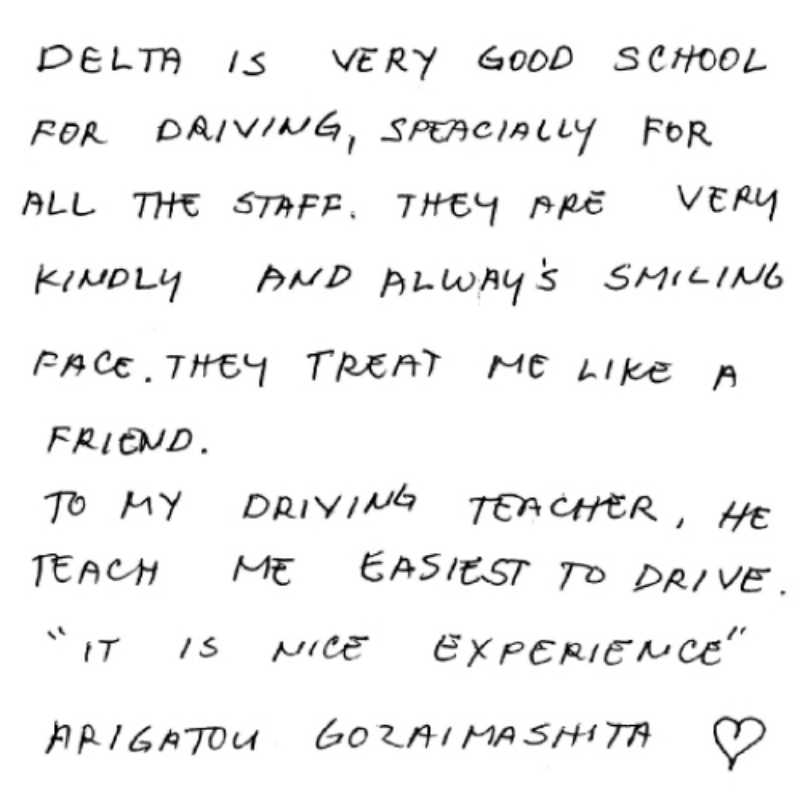 DELTA IS VERY GOOD SCHOOL
FOR DRIVING, SPEACIALLY FOR
ALL THE STAFF. THEY ARE VERY
KINDLY AND ALWAY'S SMILING
FACE. THEY TREAT ME LIKE A
FRIEND.
TO MY DRIVING TEACHER, HE
TEACH ME EASIEST TO DRIVE.
"IT IS NICE EXPERIENCE"
ARIGATOU GOZAIMASHITA ♡